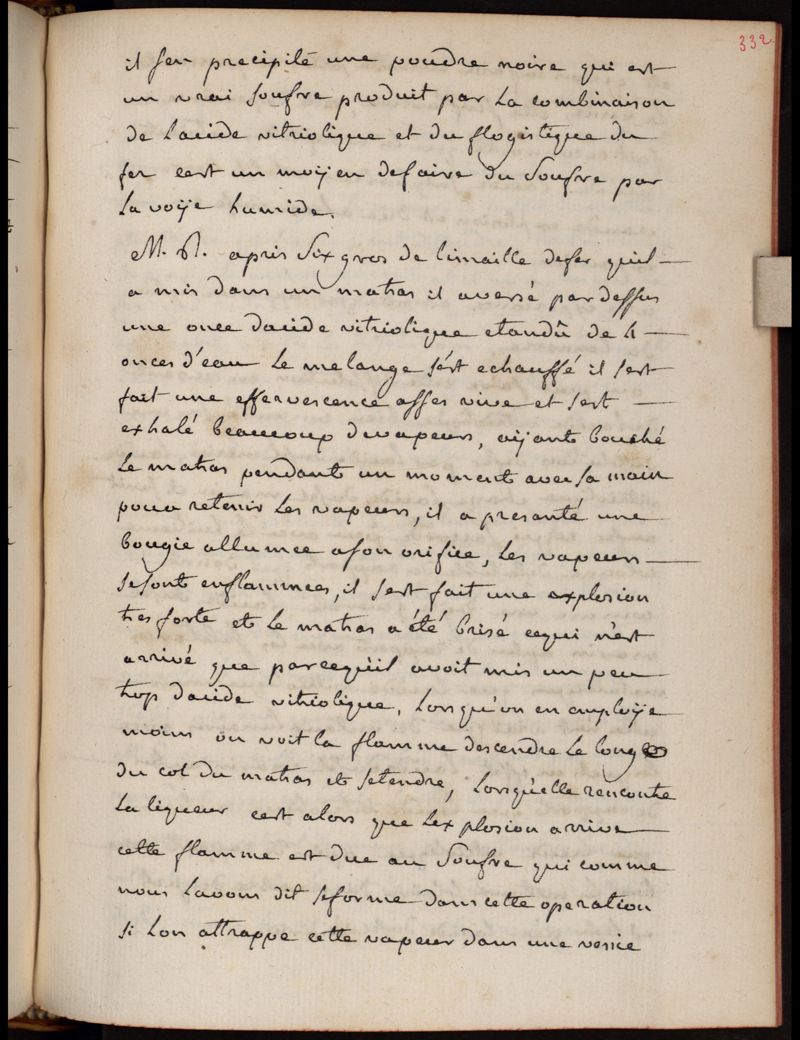 332
il sen precipité une poudre noire qui est
un vrai soufre produit par La combinaison
de Lacide vitriolique et du flogistique du
fer cest un moÿen defaire du soufre par
La voÿe humide.
M. R. apris six gros de limaille defer quil
a mis dans un matras il aversé pardessus
une once dacide vitriolique etandû de 4
onces d'eau Le melange s'ést echauffé il sest
fait une effervescence asses vive et sest
exhalé beaucoup devapeurs, aÿant bouché
Le matras pendant un moment avec sa main
pour retenir Les vapeurs, il a presanté une
bougie allumee ason orifice, Les vapeurs
sesont enflammees, il sest fait une explosion
tres forte et Le matras a été brisé cequi n'est
arrivé que parcequ'il avoit mis un peu
trop dacide vitriolique, Lorsqu'on en emploÿe
moins on voit la flamme descendre Le long
du col du matras et setendre, Lorsqu'elle rencontre
La liqueur cest alors que Lexplosion arrive
cette flamme est due au soufre qui comme
nous Lavons dit seforme dans cette operation
si Lon attrappe cette vapeur dans une vesice